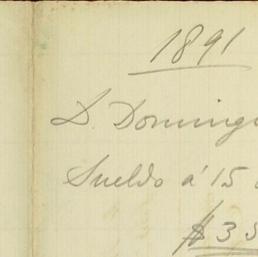 1891
D Doming
Sueldo á 15
$ 35